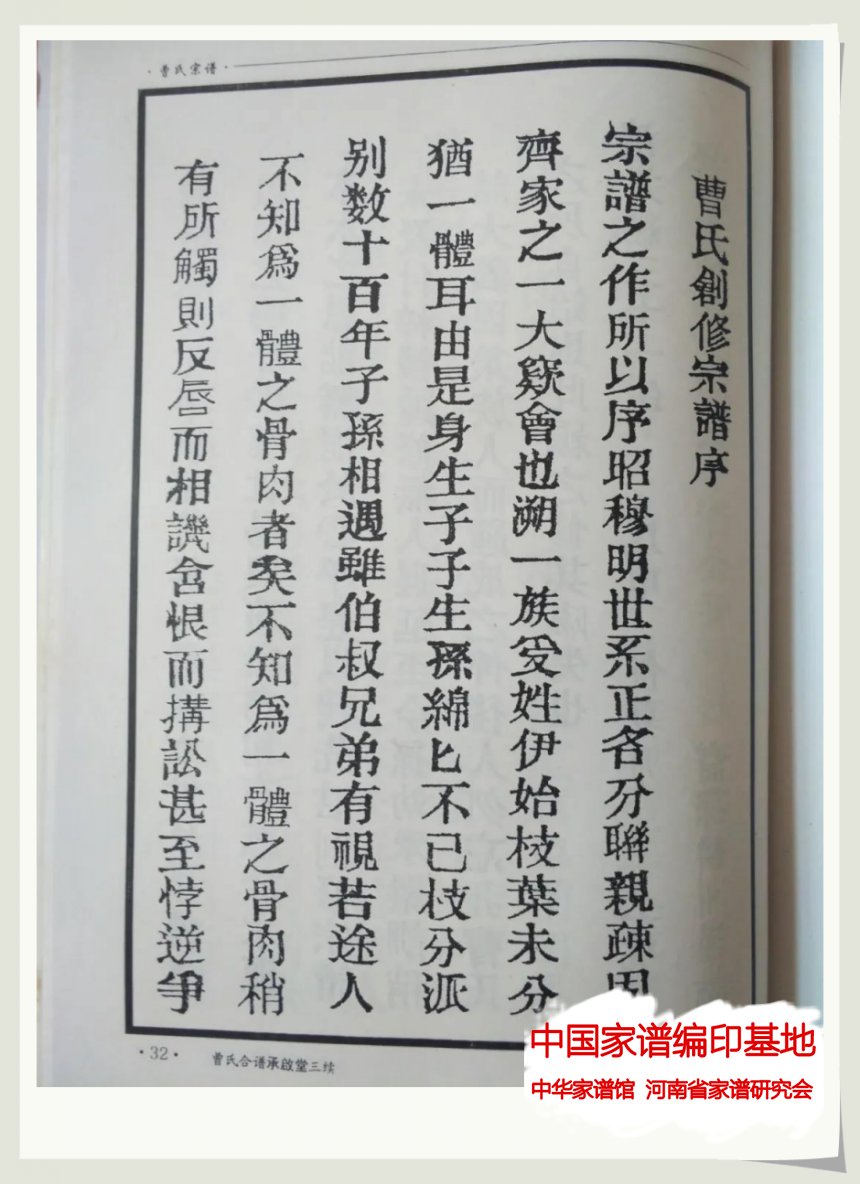 ·曹氏宗谱·
曹氏創修宗譜序
宗譜之作所以序昭穆明世系正名分聯親疎固
齊家之一大窾會也溯一族受姓伊始枝葉未分
猶一體耳由是身生子子生孫綿匕不已枝分派
别数十百年子孫相遇雖伯叔兄弟有視若途人
不知爲一體之骨肉者矣不知爲一體之骨肉稍
有所觸則反唇而相譏含恨而搆訟甚至悖逆爭
·32·
曹氏合谱承啟堂三续
中国家谱编印基地
中华家谱馆 河南省家谱研究会